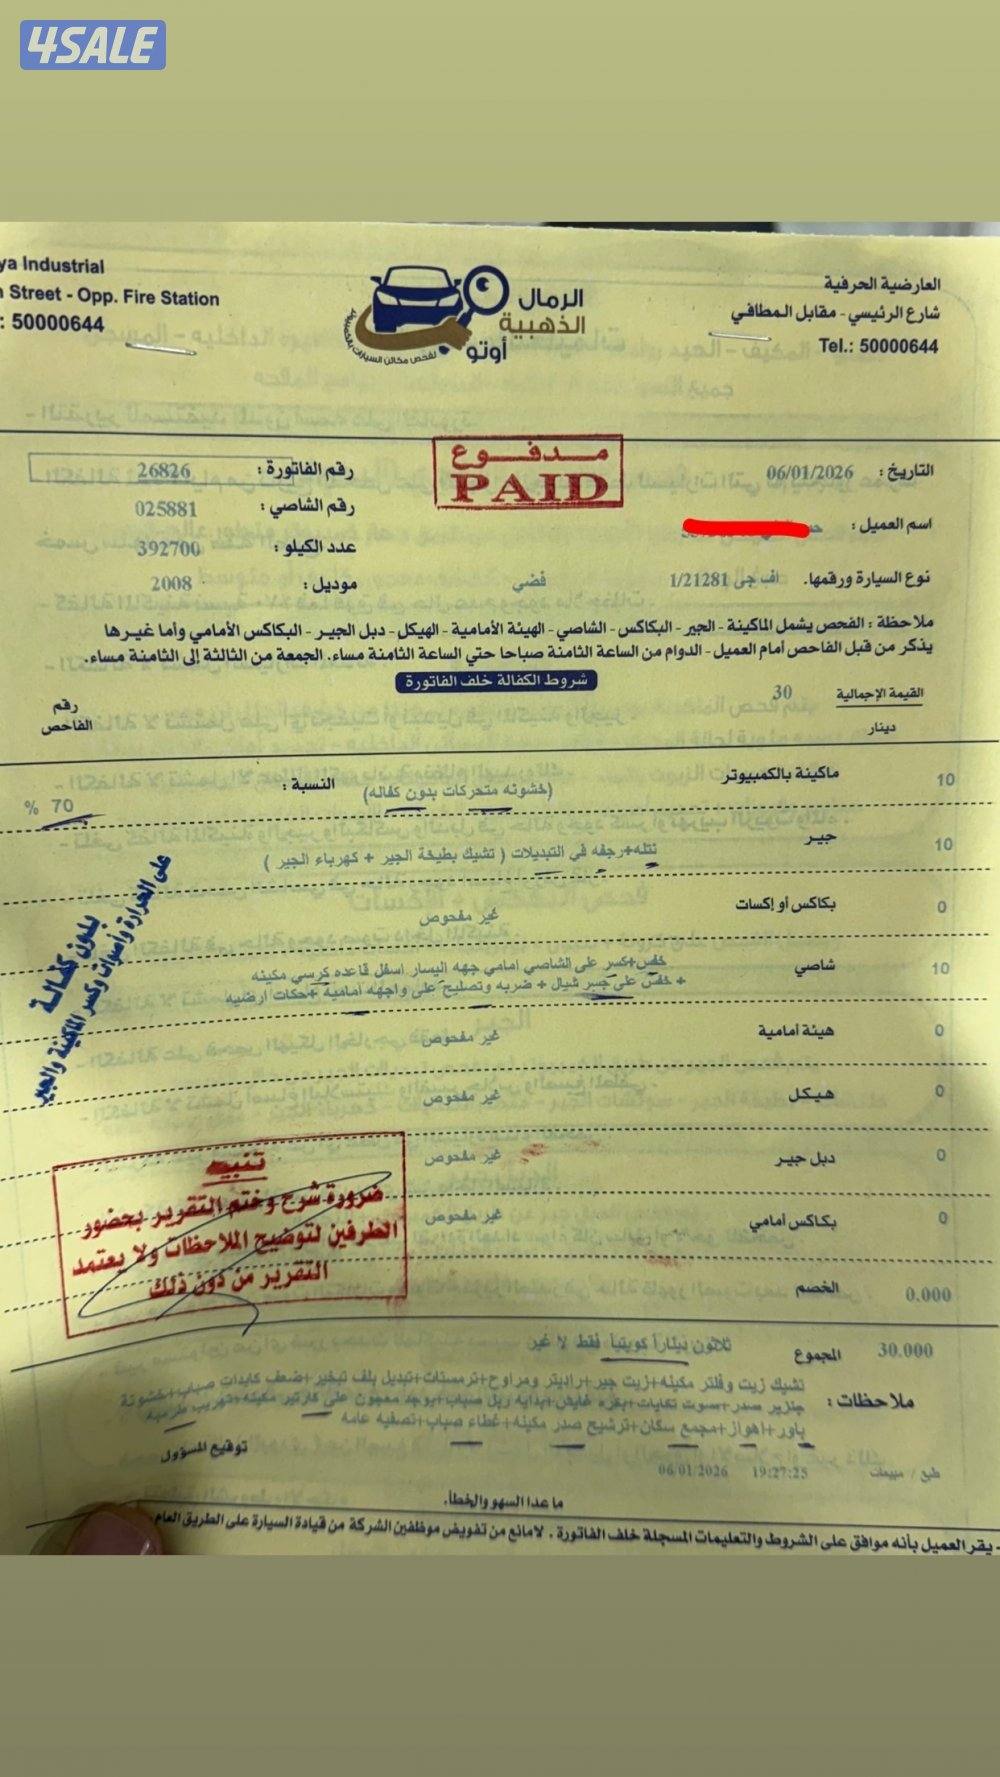 4SALE
ya Industrial
Street - Opp. Fire Station
: 50000644
الرمال
الذهبية
أوتو
لفحص مكائن السيارات بالكمبيوتر
العارضية الحرفية
شارع الرئيسي - مقابل المطافي
Tel.: 50000644
مدفوع
PAID
التاريخ : 06/01/2026
رقم الفاتورة : 26826
اسم العميل :
رقم الشاصي : 025881
عدد الكيلو : 392700
نوع السيارة ورقمها. اف جى 1/21281 فضي
موديل : 2008
ملاحظة : الفحص يشمل الماكينة - الجير - البكاكس - الشاصي - الهيئة الأمامية - الهيكل - دبل الجير - البكاكس الأمامي وأما غيرها
يذكر من قبل الفاحص أمام العميل - الدوام من الساعة الثامنة صباحا حتي الساعة الثامنة مساء. الجمعة من الثالثة إلى الثامنة مساء.
شروط الكفالة خلف الفاتورة
القيمة الإجمالية 30
دينار
رقم
الفاحص
10 ماكينة بالكمبيوتر (خشونه متحركات بدون كفاله) النسبة : 70 %
10 جير نتله+رجفه في التبديلات ( تشيك بطيخة الجير + كهرباء الجير )
0 بكاكس أو إكسات غير مفحوص
10 شاصي خفس+كسر على الشاصي امامي جهه اليسار اسفل قاعده كرسي مكينه
+ خفس على جسر شيال + ضربه وتصليح على واجهه امامية +حكات ارضيه
0 هيئة أمامية غير مفحوص
0 هيكل غير مفحوص
0 دبل جير غير مفحوص
0 بكاكس أمامي غير مفحوص
0.000 الخصم
بدون كفالة
على الحرارة وأصوات وكسر الماكينة والجير
تنبيه
ضرورة شرح وختم التقرير بحضور
الطرفين لتوضيح الملاحظات ولا يعتمد
التقرير من دون ذلك
30.000 المجموع ثلاثون ديناراً كويتياً فقط لا غير
ملاحظات : تشيك زيت وفلتر مكينه+زيت جير+راديتر ومراوح+ترمستات+تبديل بلف تبخير+ضعف كابدات صباب+خشونة
جنزير صدر+صوت تكايات+بقره غايش+بدايه ريل صباب+يوجد معجون على كارتير مكينه+تهريب طرمبة
باور+اهواز+مجمع سكان+ترشيح صدر مكينه+غطاء صباب+تصفيه عامه
توقيع المسؤول
طبع / مبيعات 19:27:25 06/01/2026
ما عدا السهو والخطأ.
- يقر العميل بأنه موافق على الشروط والتعليمات المسجلة خلف الفاتورة . لامانع من تفويض موظفين الشركة من قيادة السيارة على الطريق العام